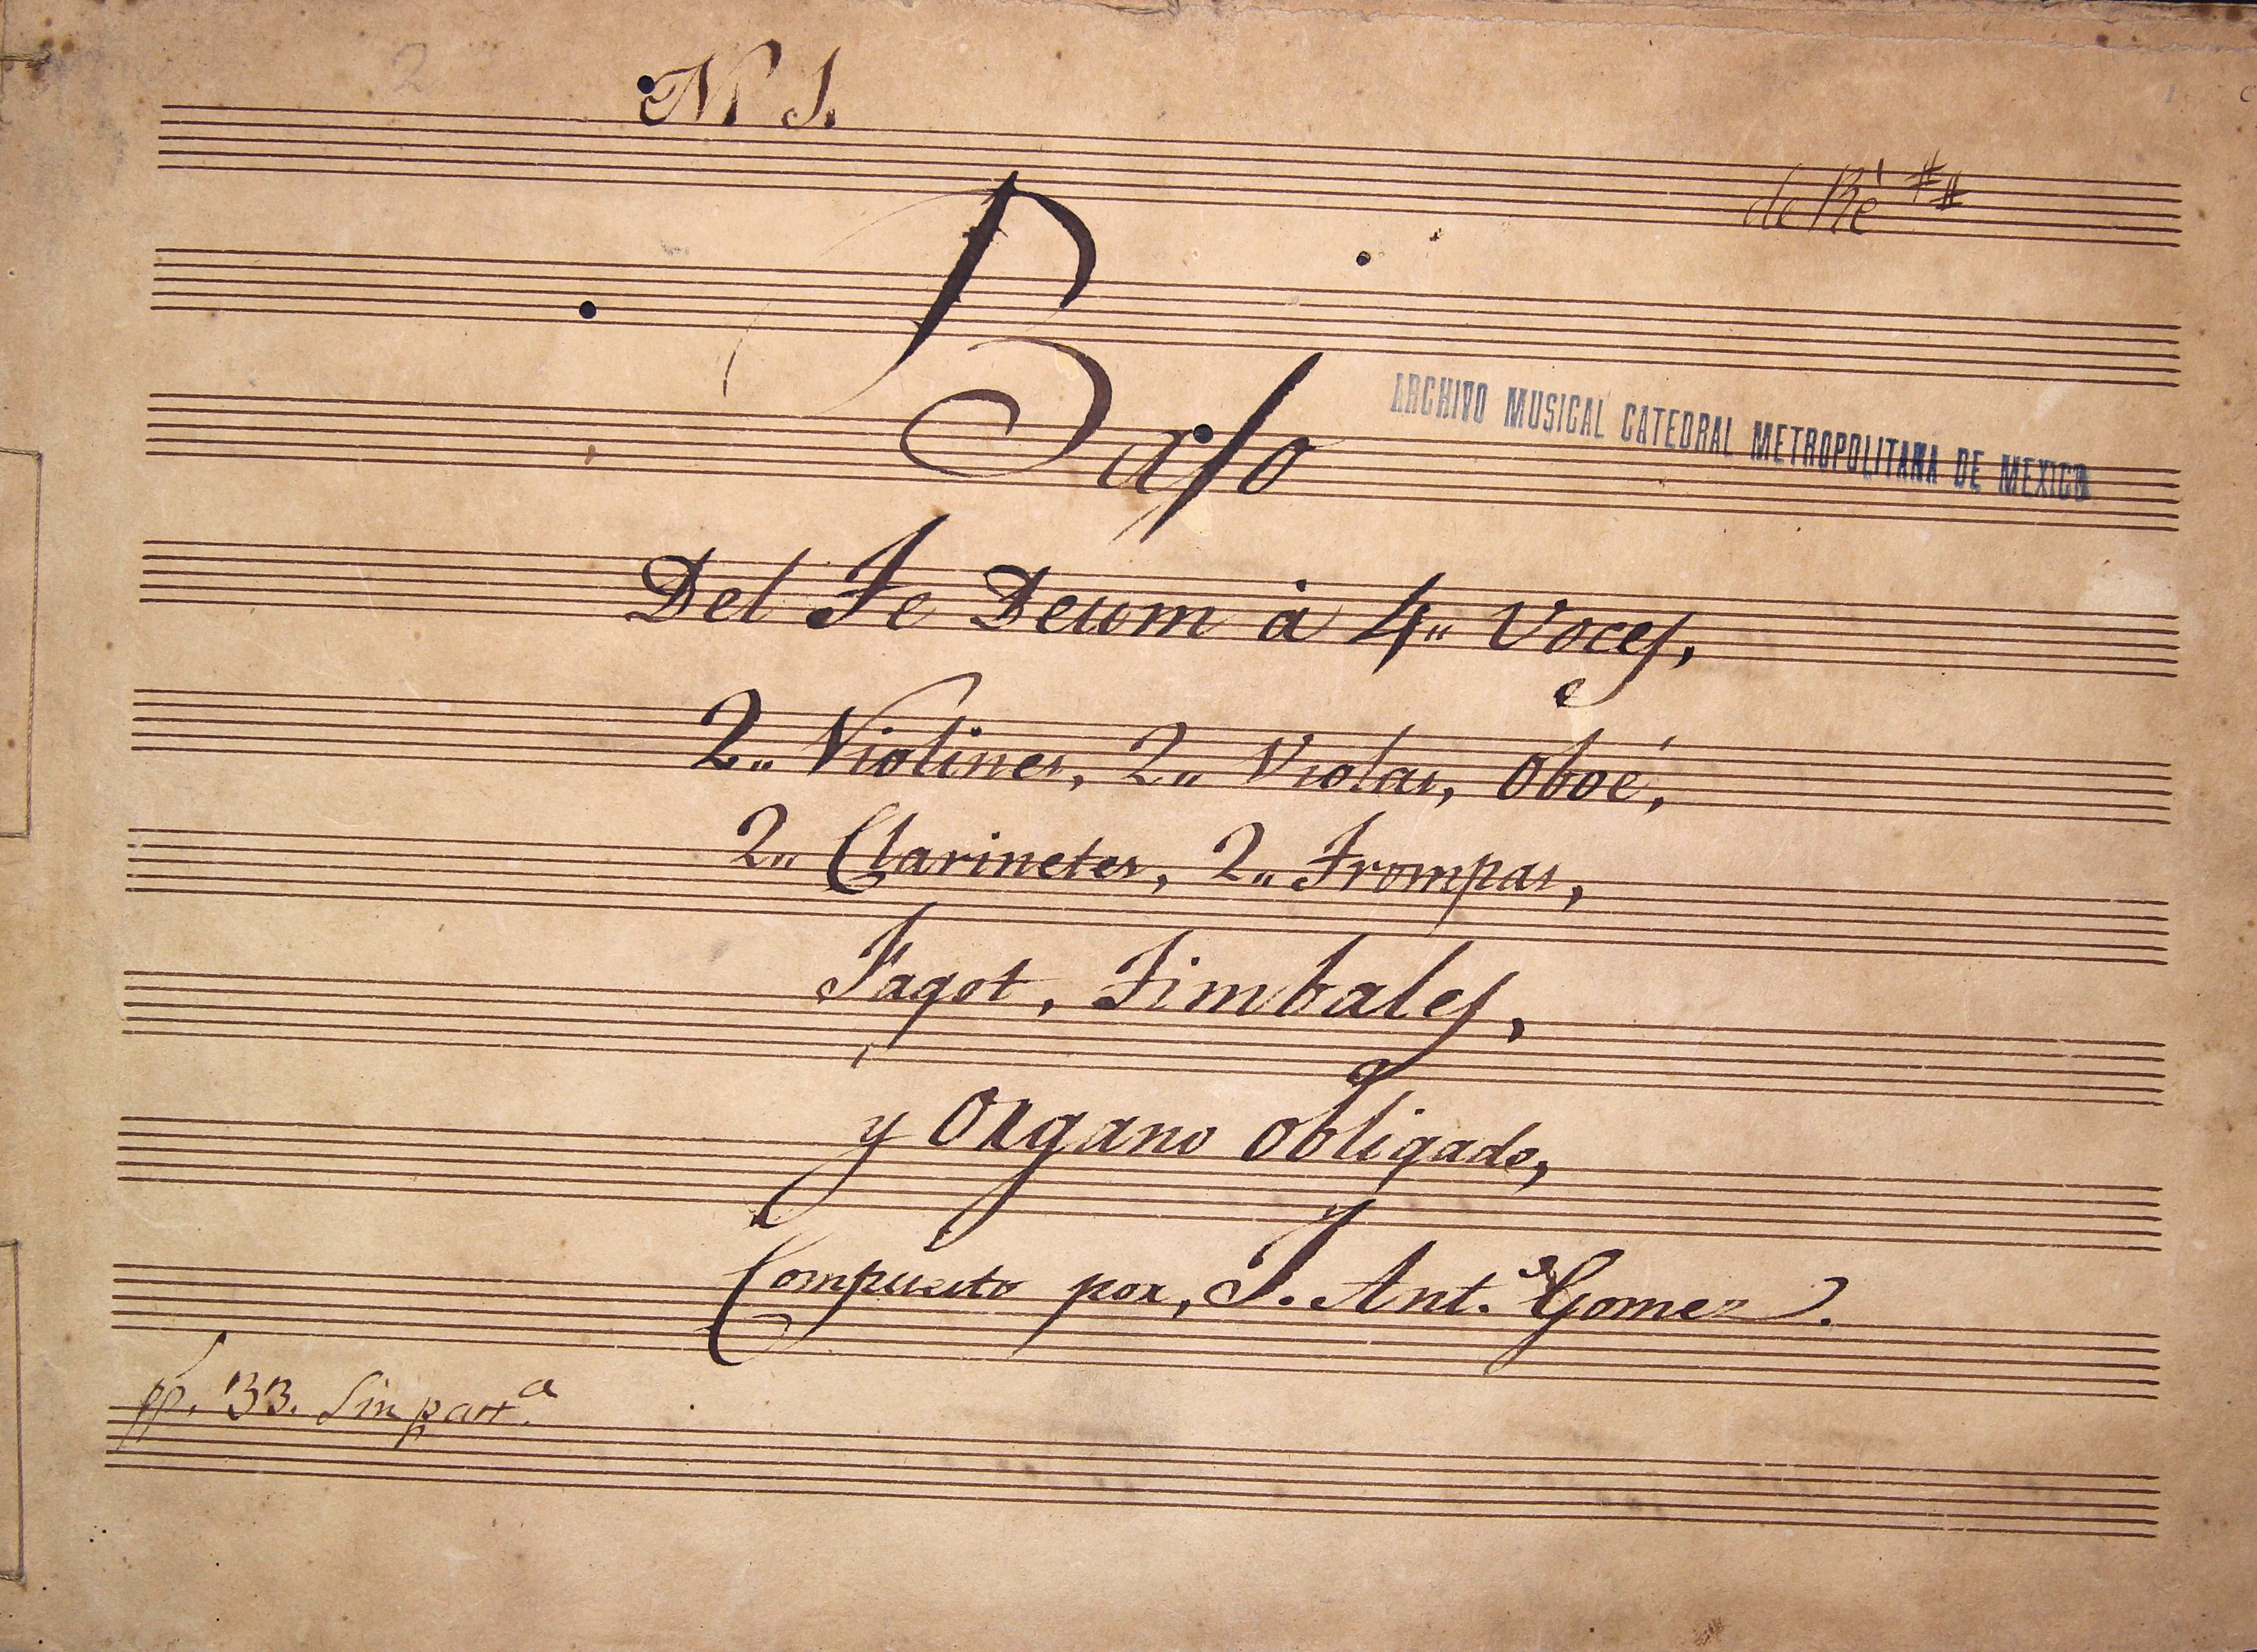 2
N 1.
de Ré ##
Bajo
ARCHIVO MUSICAL CATEDRAL METROPOLITANA DE MEXICO
Del Te Deum à 4,, Voces,
2,, Violines, 2,, Violas, Oboé,
2,, Clarinetes, 2,, Trompas,
Fagot, Timbales,
y Organo obligado,
Compuesto por, J. Ant.º Gomez.
pp. 33. Sin part.a